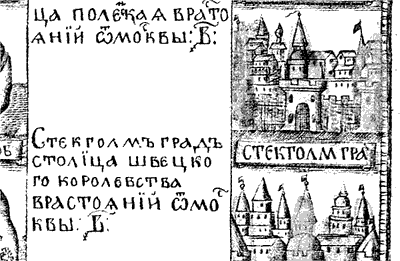 ца полскаѧ вра҇то
ѧнїй ѿмоквы: в҃:
Стекголмъ градъ
столїца швецко
го королевства
врастоѧнїй ѿмо
квы: в҃:
стекголм гра